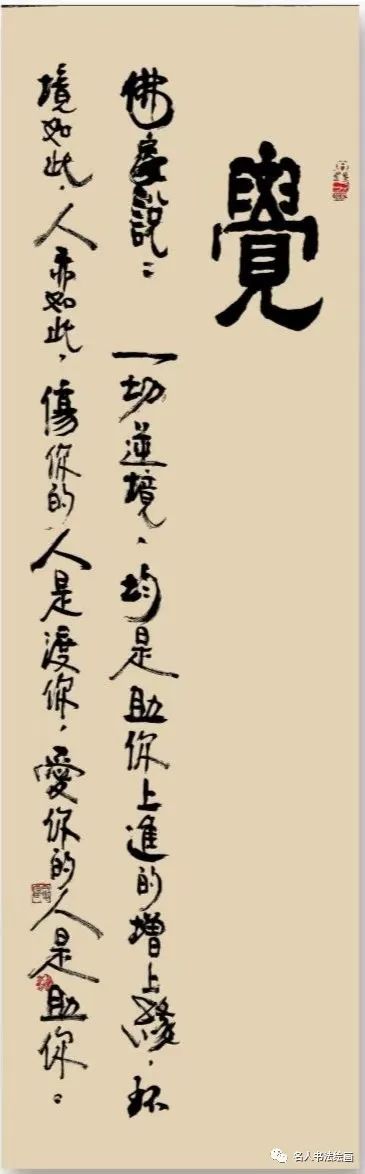 覺
佛說：一切逆境，均是助你上進的增上緣，环
境如此，人亦如此，傷你的人是渡你，愛你的人是助你。
名人书法绘画